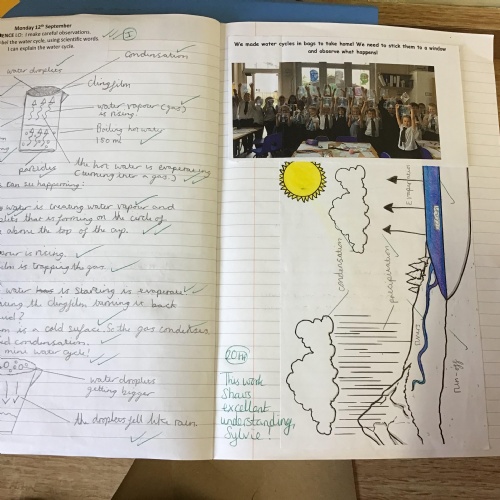 Monday 12th September
ENCE LO: I make careful observations.
bel the water cycle, using scientific words.
I can explain the water cycle.
I
Condensation
water droplets
clingfilm
water vapour (gas)
is rising.
Boiling hot water
150 ml
particles
the hot water is evaporating
(turning into a gas.)
can see happening!
water is creating water vapour and
that is forming on the circle of
above the top of the cup.
is rising.
is trapping the gas.
water is starting is
the clingfilm turning it back
is a cold surface. So the gas condenses
condensation.
mini water cycle!
water droplets
getting bigger
the droplets fell like rain.
We made water cycles in bags to take home! We need to stick them to a window
and observe what happens!
Evaporation
condensation
precipitation
River
run-off
This work
shows
excellent
understanding,
Sylvie!